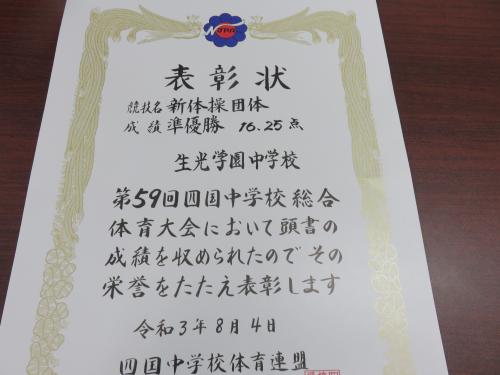 表彰状
競技名 新体操団体
成績 準優勝 16.25点
生光学園中学校
第59回四国中学校総合
体育大会において頭書の
成績を収められたのでその
栄誉をたたえ表彰します
令和3年8月4日
四国中学校体育連盟